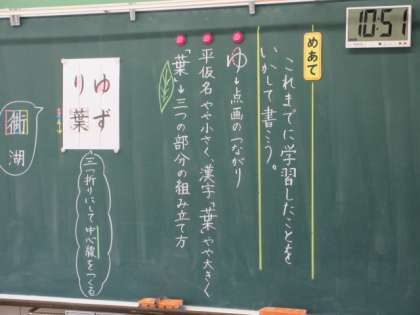 10:51
めあて
これまでに学習したことを
いかして書こう。
ゆ→点画のつながり
平仮名やや小さく、漢字「葉」やや大きく
「葉」→三つの部分の組み立て方
ゆず
り葉
三つ折りにして中心線をつくる
湖